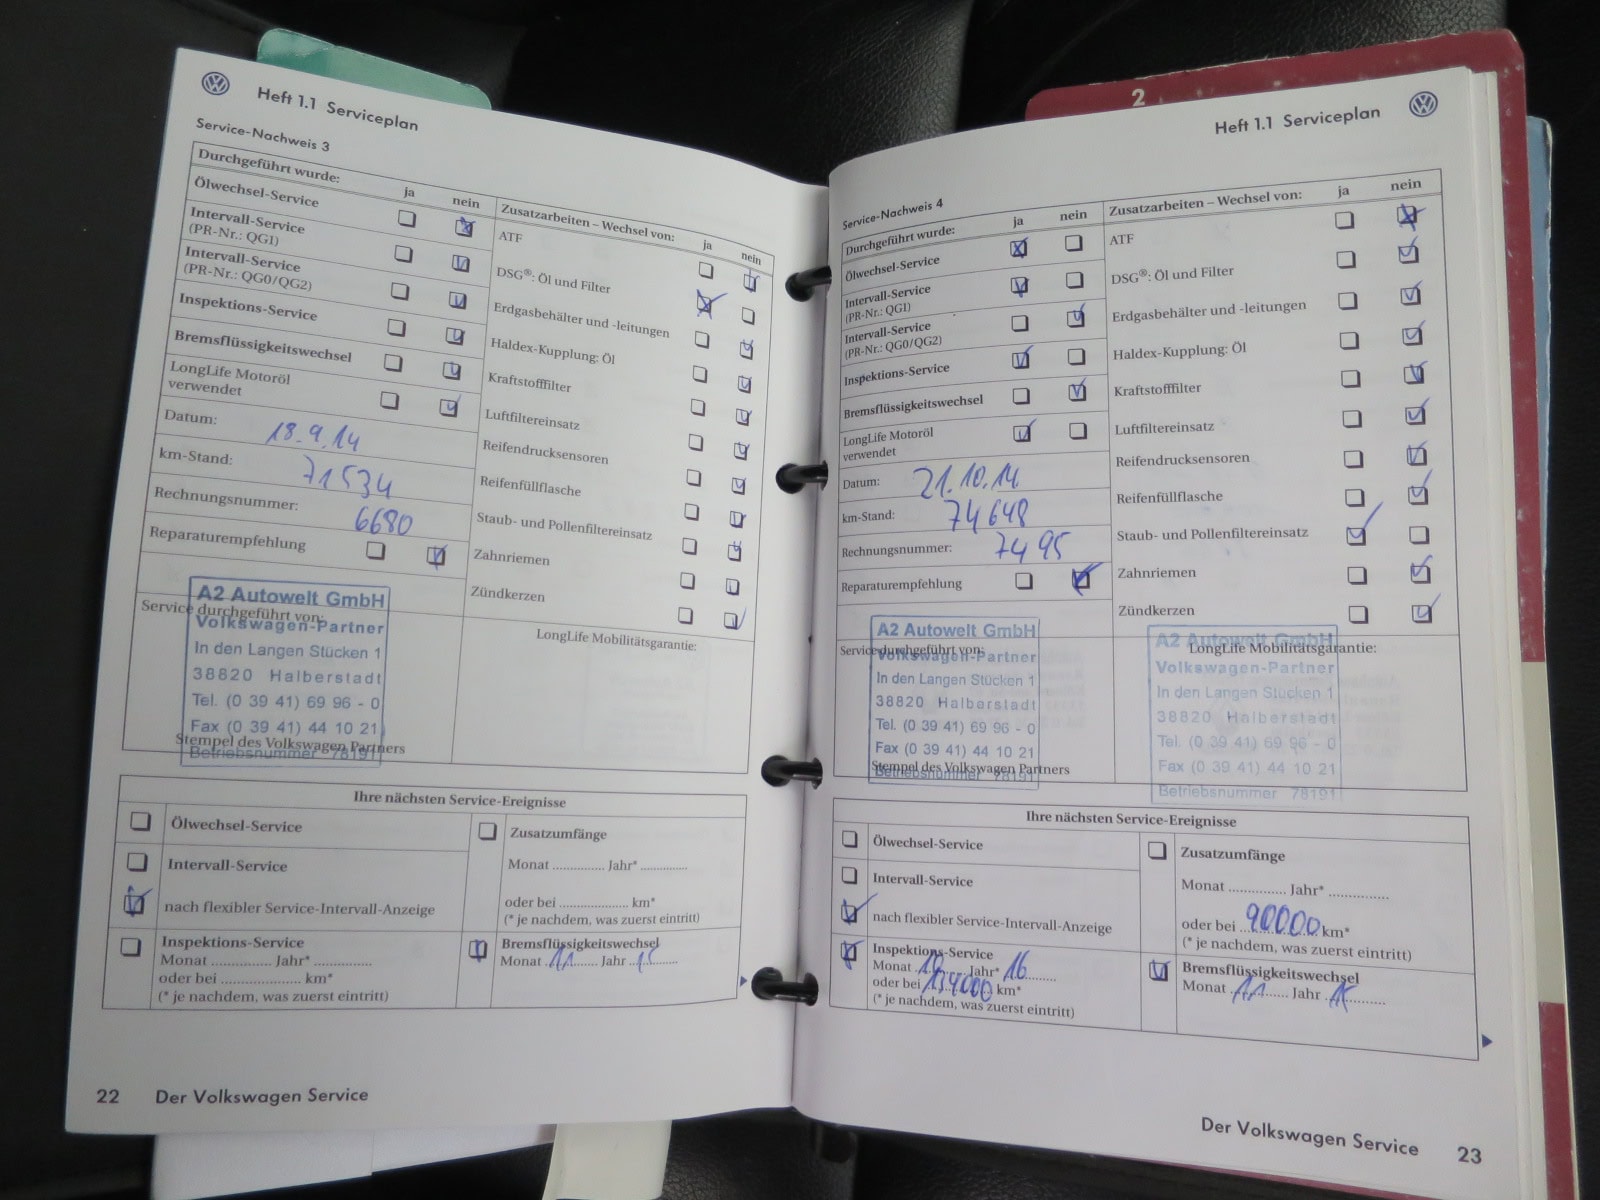 Heft 1.1 Serviceplan
Service-Nachweis 3
Durchgeführt wurde:
ja
nein
Ölwechsel-Service
Intervall-Service
(PR-Nr.: QG1)
Intervall-Service
(PR-Nr.: QG0/QG2)
Inspektions-Service
Bremsflüssigkeitswechsel
LongLife Motoröl
verwendet
Datum: 18.9.14
km-Stand: 71534
Rechnungsnummer: 6680
Reparaturempfehlung
Zusatzarbeiten – Wechsel von:
ja
nein
ATF
DSG®: Öl und Filter
Erdgasbehälter und -leitungen
Haldex-Kupplung: Öl
Kraftstofffilter
Luftfiltereinsatz
Reifendrucksensoren
Reifenfüllflasche
Staub- und Pollenfiltereinsatz
Zahnriemen
Zündkerzen
Service durchgeführt von:
A2 Autowelt GmbH
Volkswagen-Partner
In den Langen Stücken 1
38820 Halberstadt
Tel. (0 39 41) 69 96 - 0
Fax (0 39 41) 44 10 21
Betriebsnummer 78191
Stempel des Volkswagen Partners
LongLife Mobilitätsgarantie:
Ihre nächsten Service-Ereignisse
Ölwechsel-Service
Intervall-Service
nach flexibler Service-Intervall-Anzeige
Inspektions-Service
Monat ............... Jahr* ...............
oder bei .................... km*
(* je nachdem, was zuerst eintritt)
Zusatzumfänge
Monat ............. Jahr* ............
oder bei .................. km*
(* je nachdem, was zuerst eintritt)
Bremsflüssigkeitswechsel
Monat 11 Jahr 15
22 Der Volkswagen Service
2
Heft 1.1 Serviceplan
Service-Nachweis 4
Durchgeführt wurde:
ja
nein
Ölwechsel-Service
Intervall-Service
(PR-Nr.: QG1)
Intervall-Service
(PR-Nr.: QG0/QG2)
Inspektions-Service
Bremsflüssigkeitswechsel
LongLife Motoröl
verwendet
Datum: 21.10.14
km-Stand: 74648
Rechnungsnummer: 7495
Reparaturempfehlung
Zusatzarbeiten – Wechsel von:
ja
nein
ATF
DSG®: Öl und Filter
Erdgasbehälter und -leitungen
Haldex-Kupplung: Öl
Kraftstofffilter
Luftfiltereinsatz
Reifendrucksensoren
Reifenfüllflasche
Staub- und Pollenfiltereinsatz
Zahnriemen
Zündkerzen
Service durchgeführt von:
A2 Autowelt GmbH
Volkswagen-Partner
In den Langen Stücken 1
38820 Halberstadt
Tel. (0 39 41) 69 96 - 0
Fax (0 39 41) 44 10 21
Betriebsnummer 78191
Stempel des Volkswagen Partners
LongLife Mobilitätsgarantie:
A2 Autowelt GmbH
Volkswagen-Partner
In den Langen Stücken 1
38820 Halberstadt
Tel. (0 39 41) 69 96 - 0
Fax (0 39 41) 44 10 21
Betriebsnummer 78191
Ihre nächsten Service-Ereignisse
Ölwechsel-Service
Intervall-Service
nach flexibler Service-Intervall-Anzeige
Inspektions-Service
Monat 10 Jahr* 16
oder bei 134000 km*
(* je nachdem, was zuerst eintritt)
Zusatzumfänge
Monat ............... Jahr* ...............
oder bei 90000 km*
(* je nachdem, was zuerst eintritt)
Bremsflüssigkeitswechsel
Monat 11 Jahr 15
Der Volkswagen Service 23